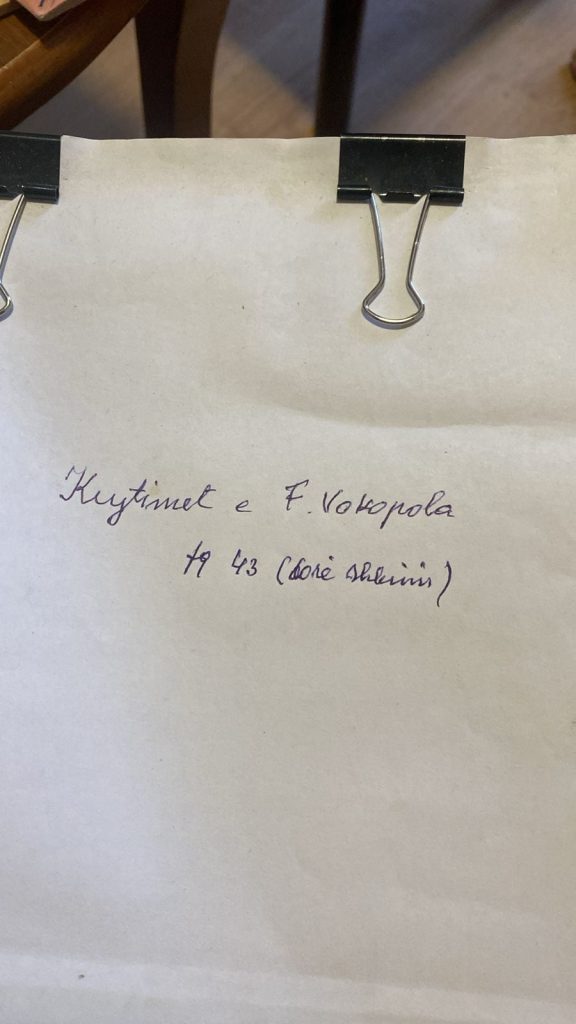 Kujtimet e F. Vokopola
1943 (dorë shkrim)